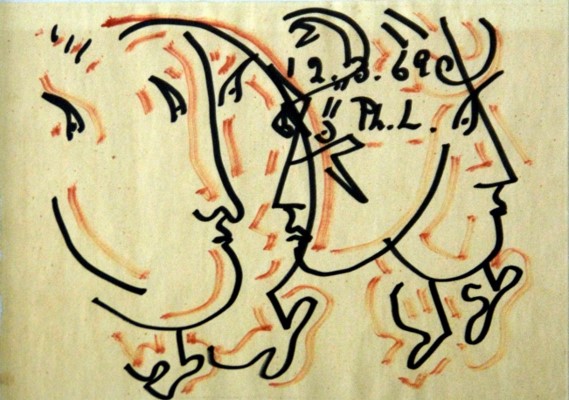 12.3.69
Ph.L.